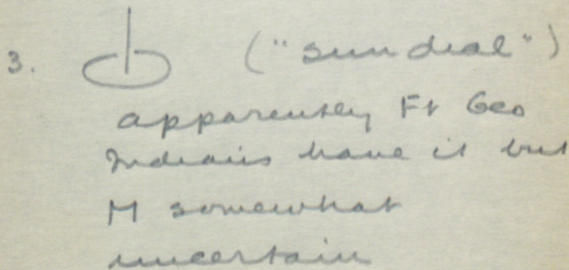 3. ("sun dial")
apparently Ft Geo
Indians have it but
M somewhat
uncertain